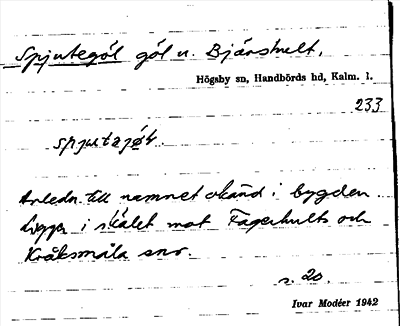 Spjutegöl göl u. Bjärshult.
Högsby sn, Handbörds hd, Kalm. l.
233
spjutajöt.
Anledn. till namnet okänd i bygden.
Ligger i skälet mot Fagerhults och
Kråksmåla snr.
s. 20.
Ivar Modéer 1942